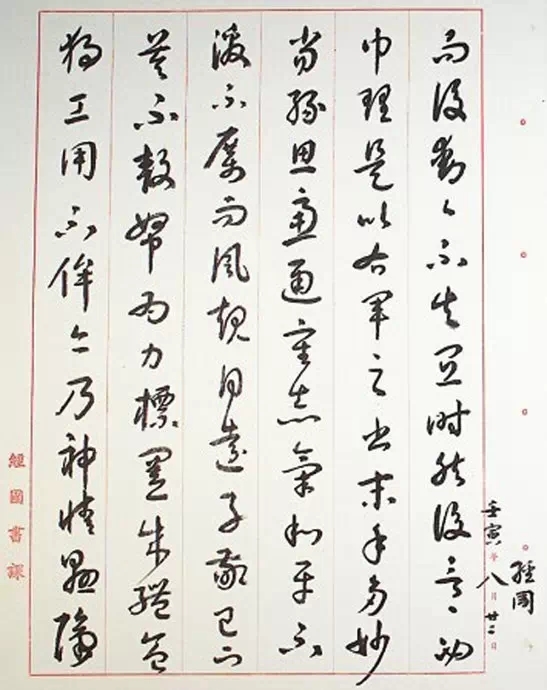 而後動〻不失宜時然後言〻必
中理是以右軍之書末年多妙
當緣思慮通審志氣和平不
激不厲而風規自遠子敬已下
莫不鼓努為力標置成體豈
獨工用不侔亦乃神情懸隔
經國
壬寅年八月廿二日
經國書課